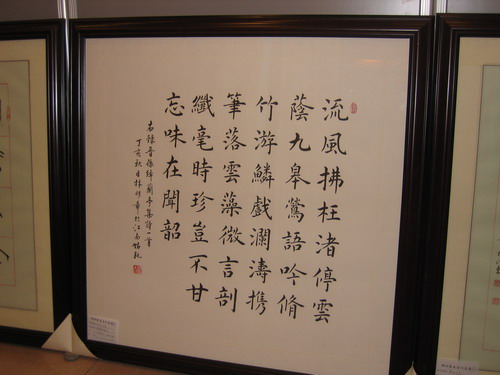 流風拂枉渚停雲
蔭九皋鶯語吟脩
竹游鱗戲瀾濤攜
筆落雲藻微言剖
纖毫時珍豈不甘
忘味在聞韶
右錄晉孫綽蘭亭集詩一首
丁亥秋月林